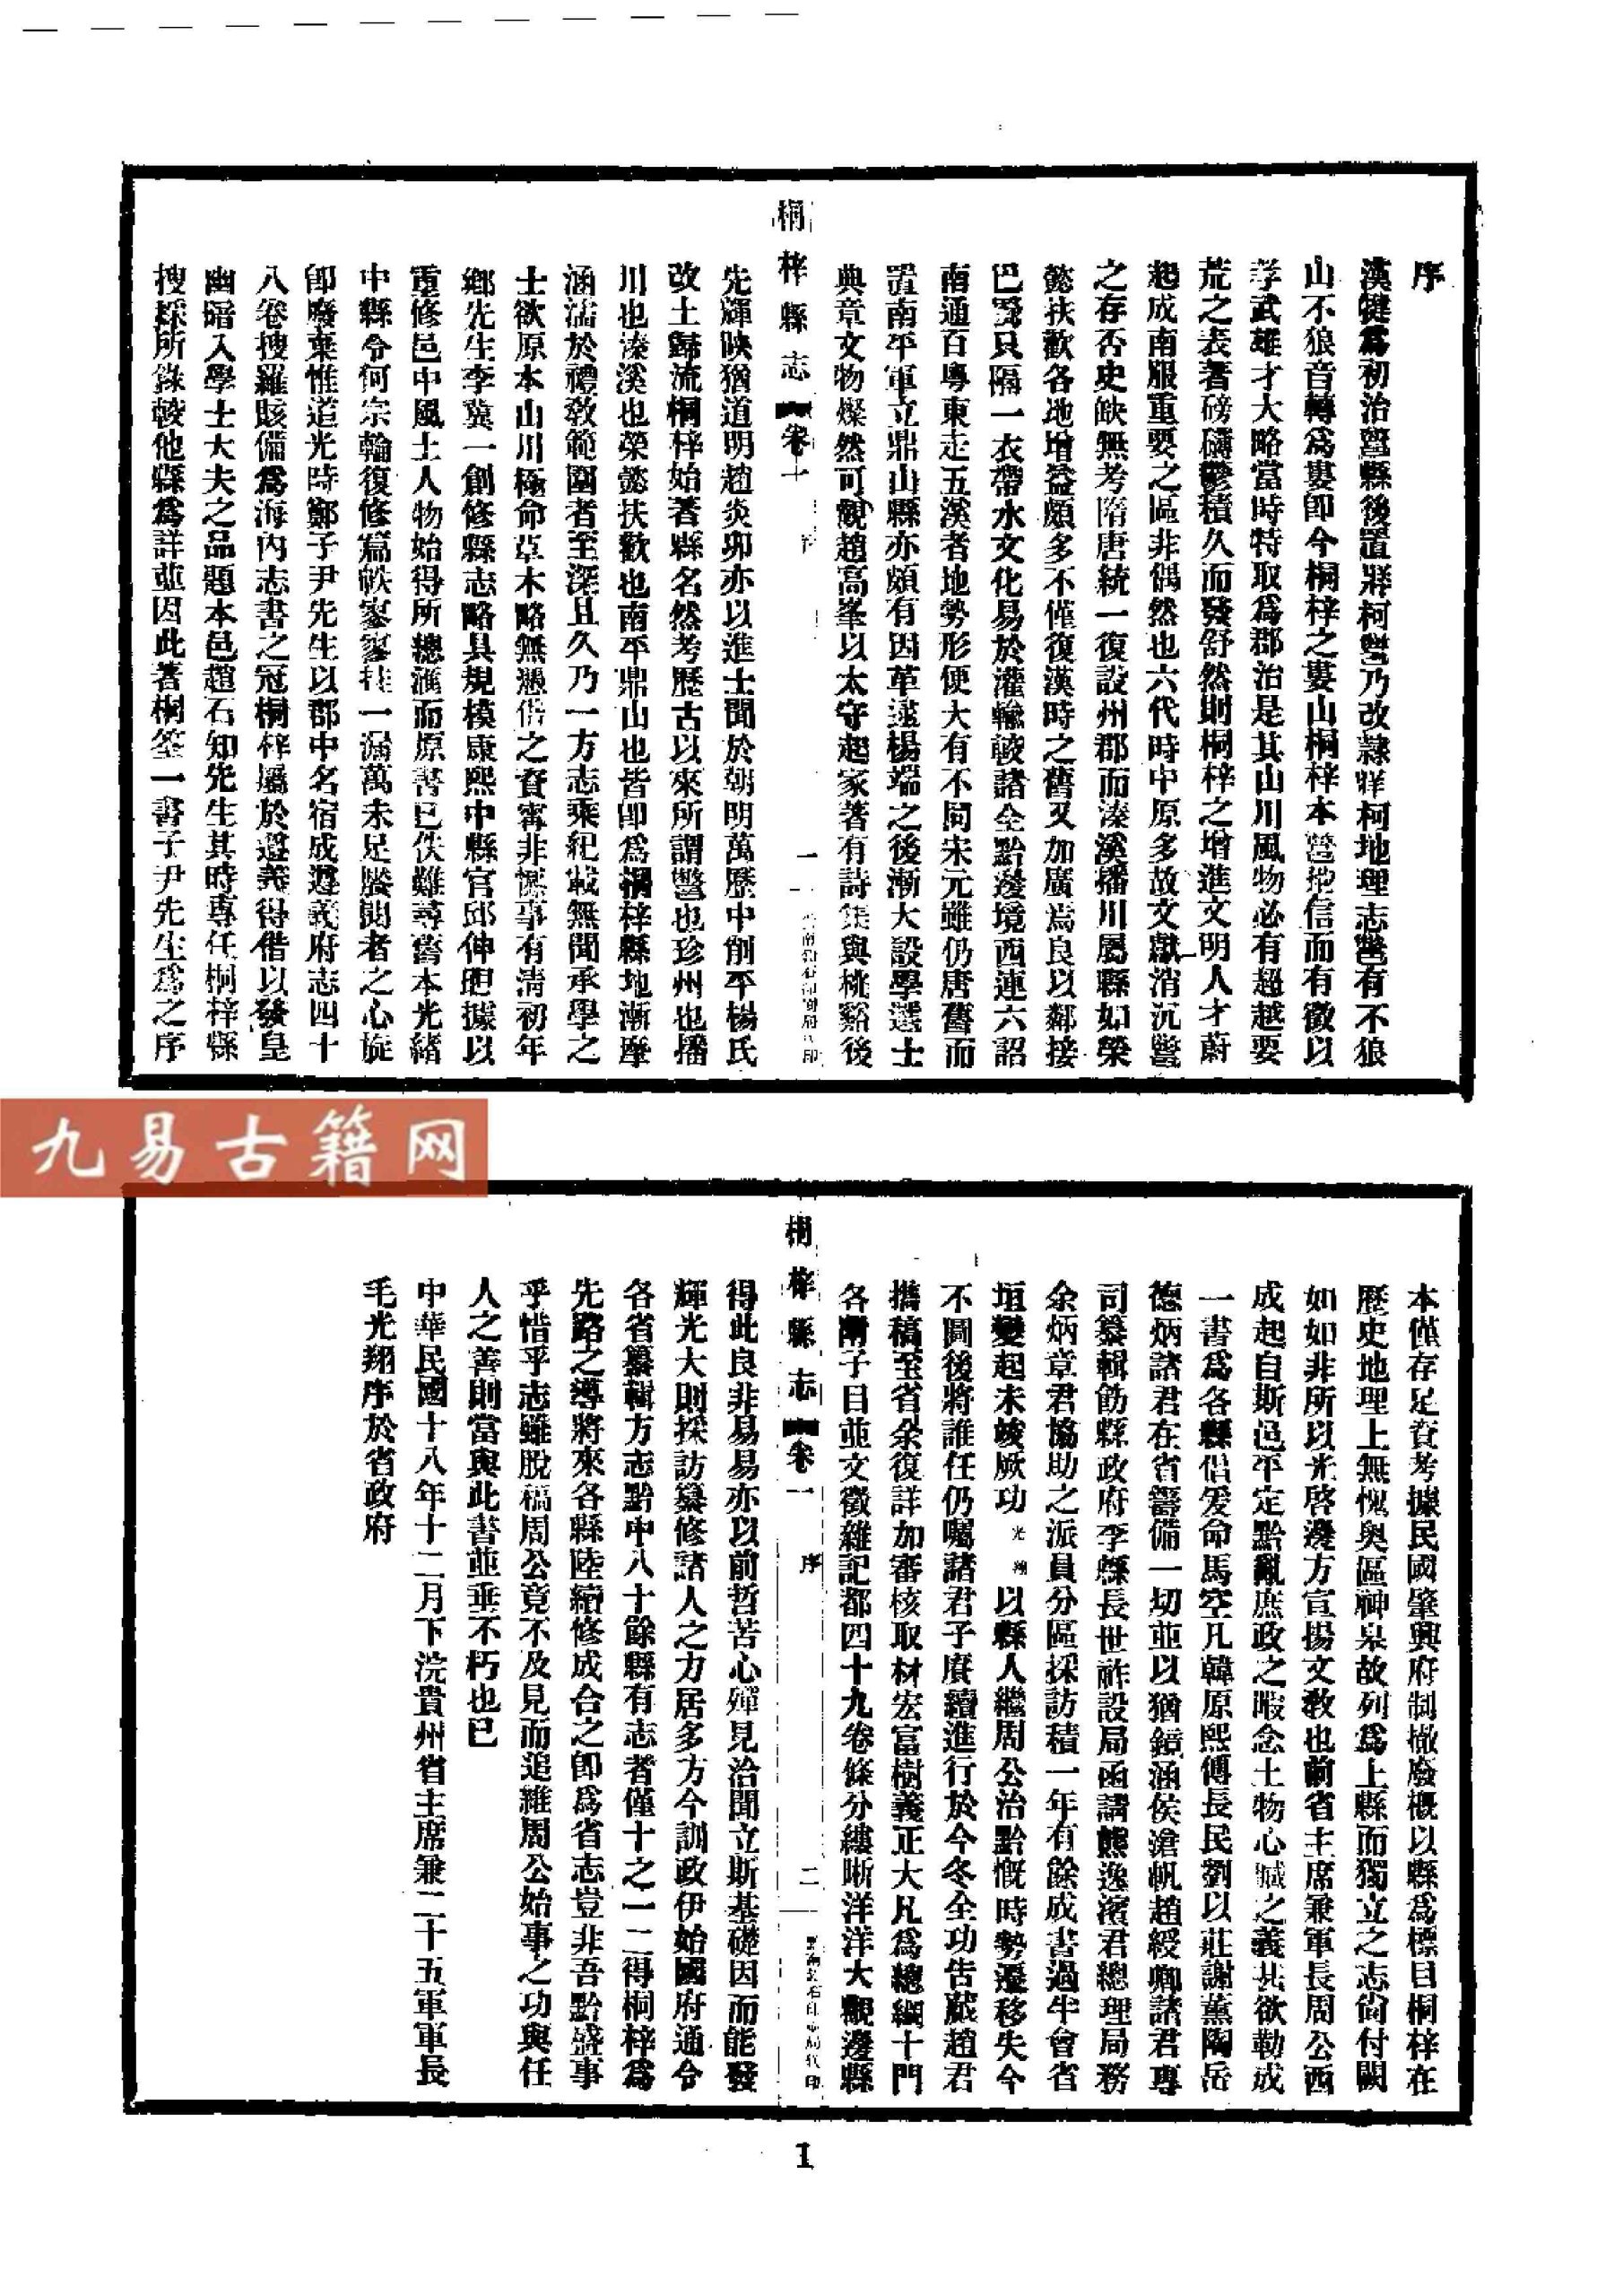 序
漢犍爲初治鄨縣後置牂柯鄨乃改隸牂柯地理志鄨有不狼
山不狼音轉爲婁卽今桐梓之婁山桐梓本鄨地信而有徵以
孝武雄才大略當時特取爲郡治是其山川風物必有超越要
荒之表著磅礴鬱積久而發舒然則桐梓之增進文明人才蔚
起成南服重要之區非偶然也六代時中原多故文獻消沉鄨
之存否史缺無考隋唐統一復設州郡而溱溪播川屬縣如榮
懿扶歡各地增益頗多不僅復漢時之舊又加廣焉良以鄰接
巴蜀只隔一衣帶水文化易於灌輸較諸全黔邊境西連六詔
南通百粵東走五溪者地勢形便大有不同宋元雖仍唐舊而
置南平軍立鼎山縣亦頗有因革逮楊端之後漸大設學選士
典章文物燦然可觀趙高峯以太守起家著有詩集與桃谿後
桐梓縣志 卷一 序 一
先輝映猶道明趙炎卯亦以進士聞於朝明萬歷中削平楊氏
改土歸流桐梓始著縣名然考歷古以來所謂鄨也珍州也播
川也溱溪也榮懿扶歡也南平鼎山也皆卽爲桐梓縣地漸摩
涵濡於禮敎範圍者至深且久乃一方志乘紀載無聞承學之
士欲原本山川極命草木略無憑借之資寗非憾事有清初年
鄉先生李冀一創修縣志略具規模康熙中縣官邱仲旦據以
重修邑中風土人物始得所總滙而原書已佚難尋舊本光緒
中縣令何宗輪復修篇帙寥寥挂一漏萬未足饜閱者之心旋
卽廢棄惟道光時鄭子尹先生以郡中名宿成遵義府志四十
八卷搜羅賅備爲海內志書之冠桐梓屬於遵義得借以發皇
幽闇入學士大夫之品題本邑趙石知先生其時專任桐梓縣
搜採所錄較他縣爲詳並因此著桐筌一書子尹先生爲之序
本僅存足資考據民國肇興府制撤廢槪以縣爲標目桐梓在
歷史地理上無愧奧區神皋故列爲上縣而獨立之志尙付闕
如如非所以光啓邊方宣揚文敎也前省主席兼軍長周公西
成起自斯邑平定黔亂庶政之暇念土物心臧之義共欲勒成
一書爲各縣倡爰命馬空凡韓原熙傅長民劉以莊謝薰陶岳
德炳諸君在省籌備一切並以猶鏡涵侯滄帆趙綬卿諸君專
司纂輯飭縣政府李縣長世祚設局函請熊逸濱君總理局務
余炳章君協助之派員分區採訪積一年有餘成書過半會省
垣變起未竣厥功光翔以縣人繼周公治黔慨時勢遷移失今
不圖後將誰任仍囑諸君子賡續進行於今冬全功告蕆趙君
攜稿至省余復詳加審核取材宏富樹義正大凡爲總綱十門
各附子目並文徵雜記都四十九卷條分縷晰洋洋大觀邊縣
桐梓縣志 卷一 序 二
得此良非易易亦以前哲苦心殫見洽聞立斯基礎因而能發
輝光大則採訪纂修諸人之力居多方今訓政伊始國府通令
各省纂輯方志黔中八十餘縣有志者僅十之一二得桐梓爲
先路之導將來各縣陸續修成合之卽爲省志豈非吾黔盛事
乎惜乎志雖脫稿周公竟不及見而追維周公始事之功與任
人之善則當與此書並垂不朽也已
中華民國十八年十二月下浣貴州省主席兼二十五軍軍長
毛光翔序於省政府
九易古籍网
1